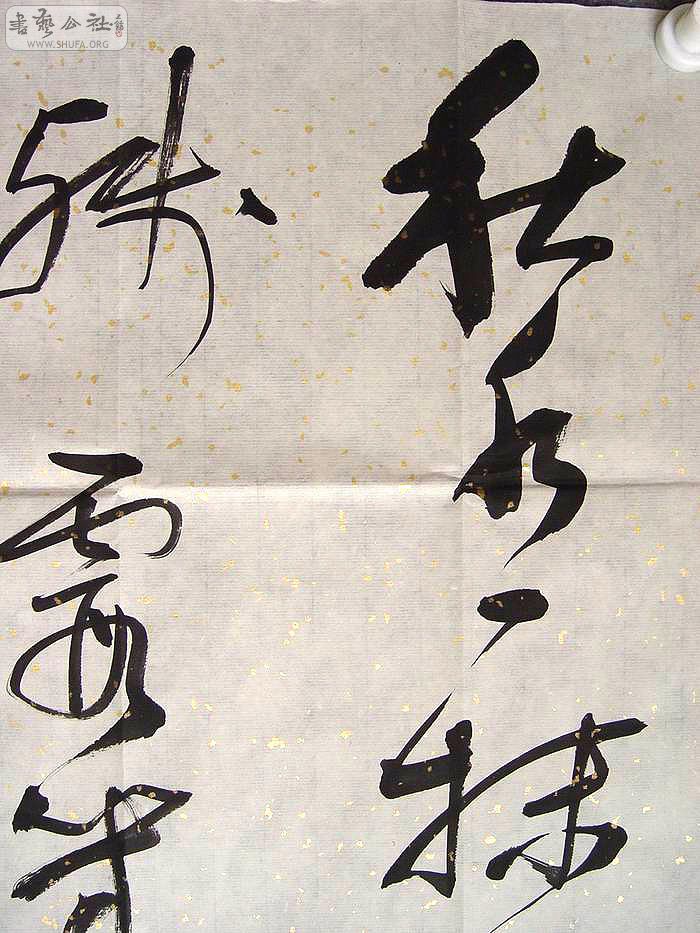 書藝公社
WWW.SHUFA.ORG
秋水一抹
残霞